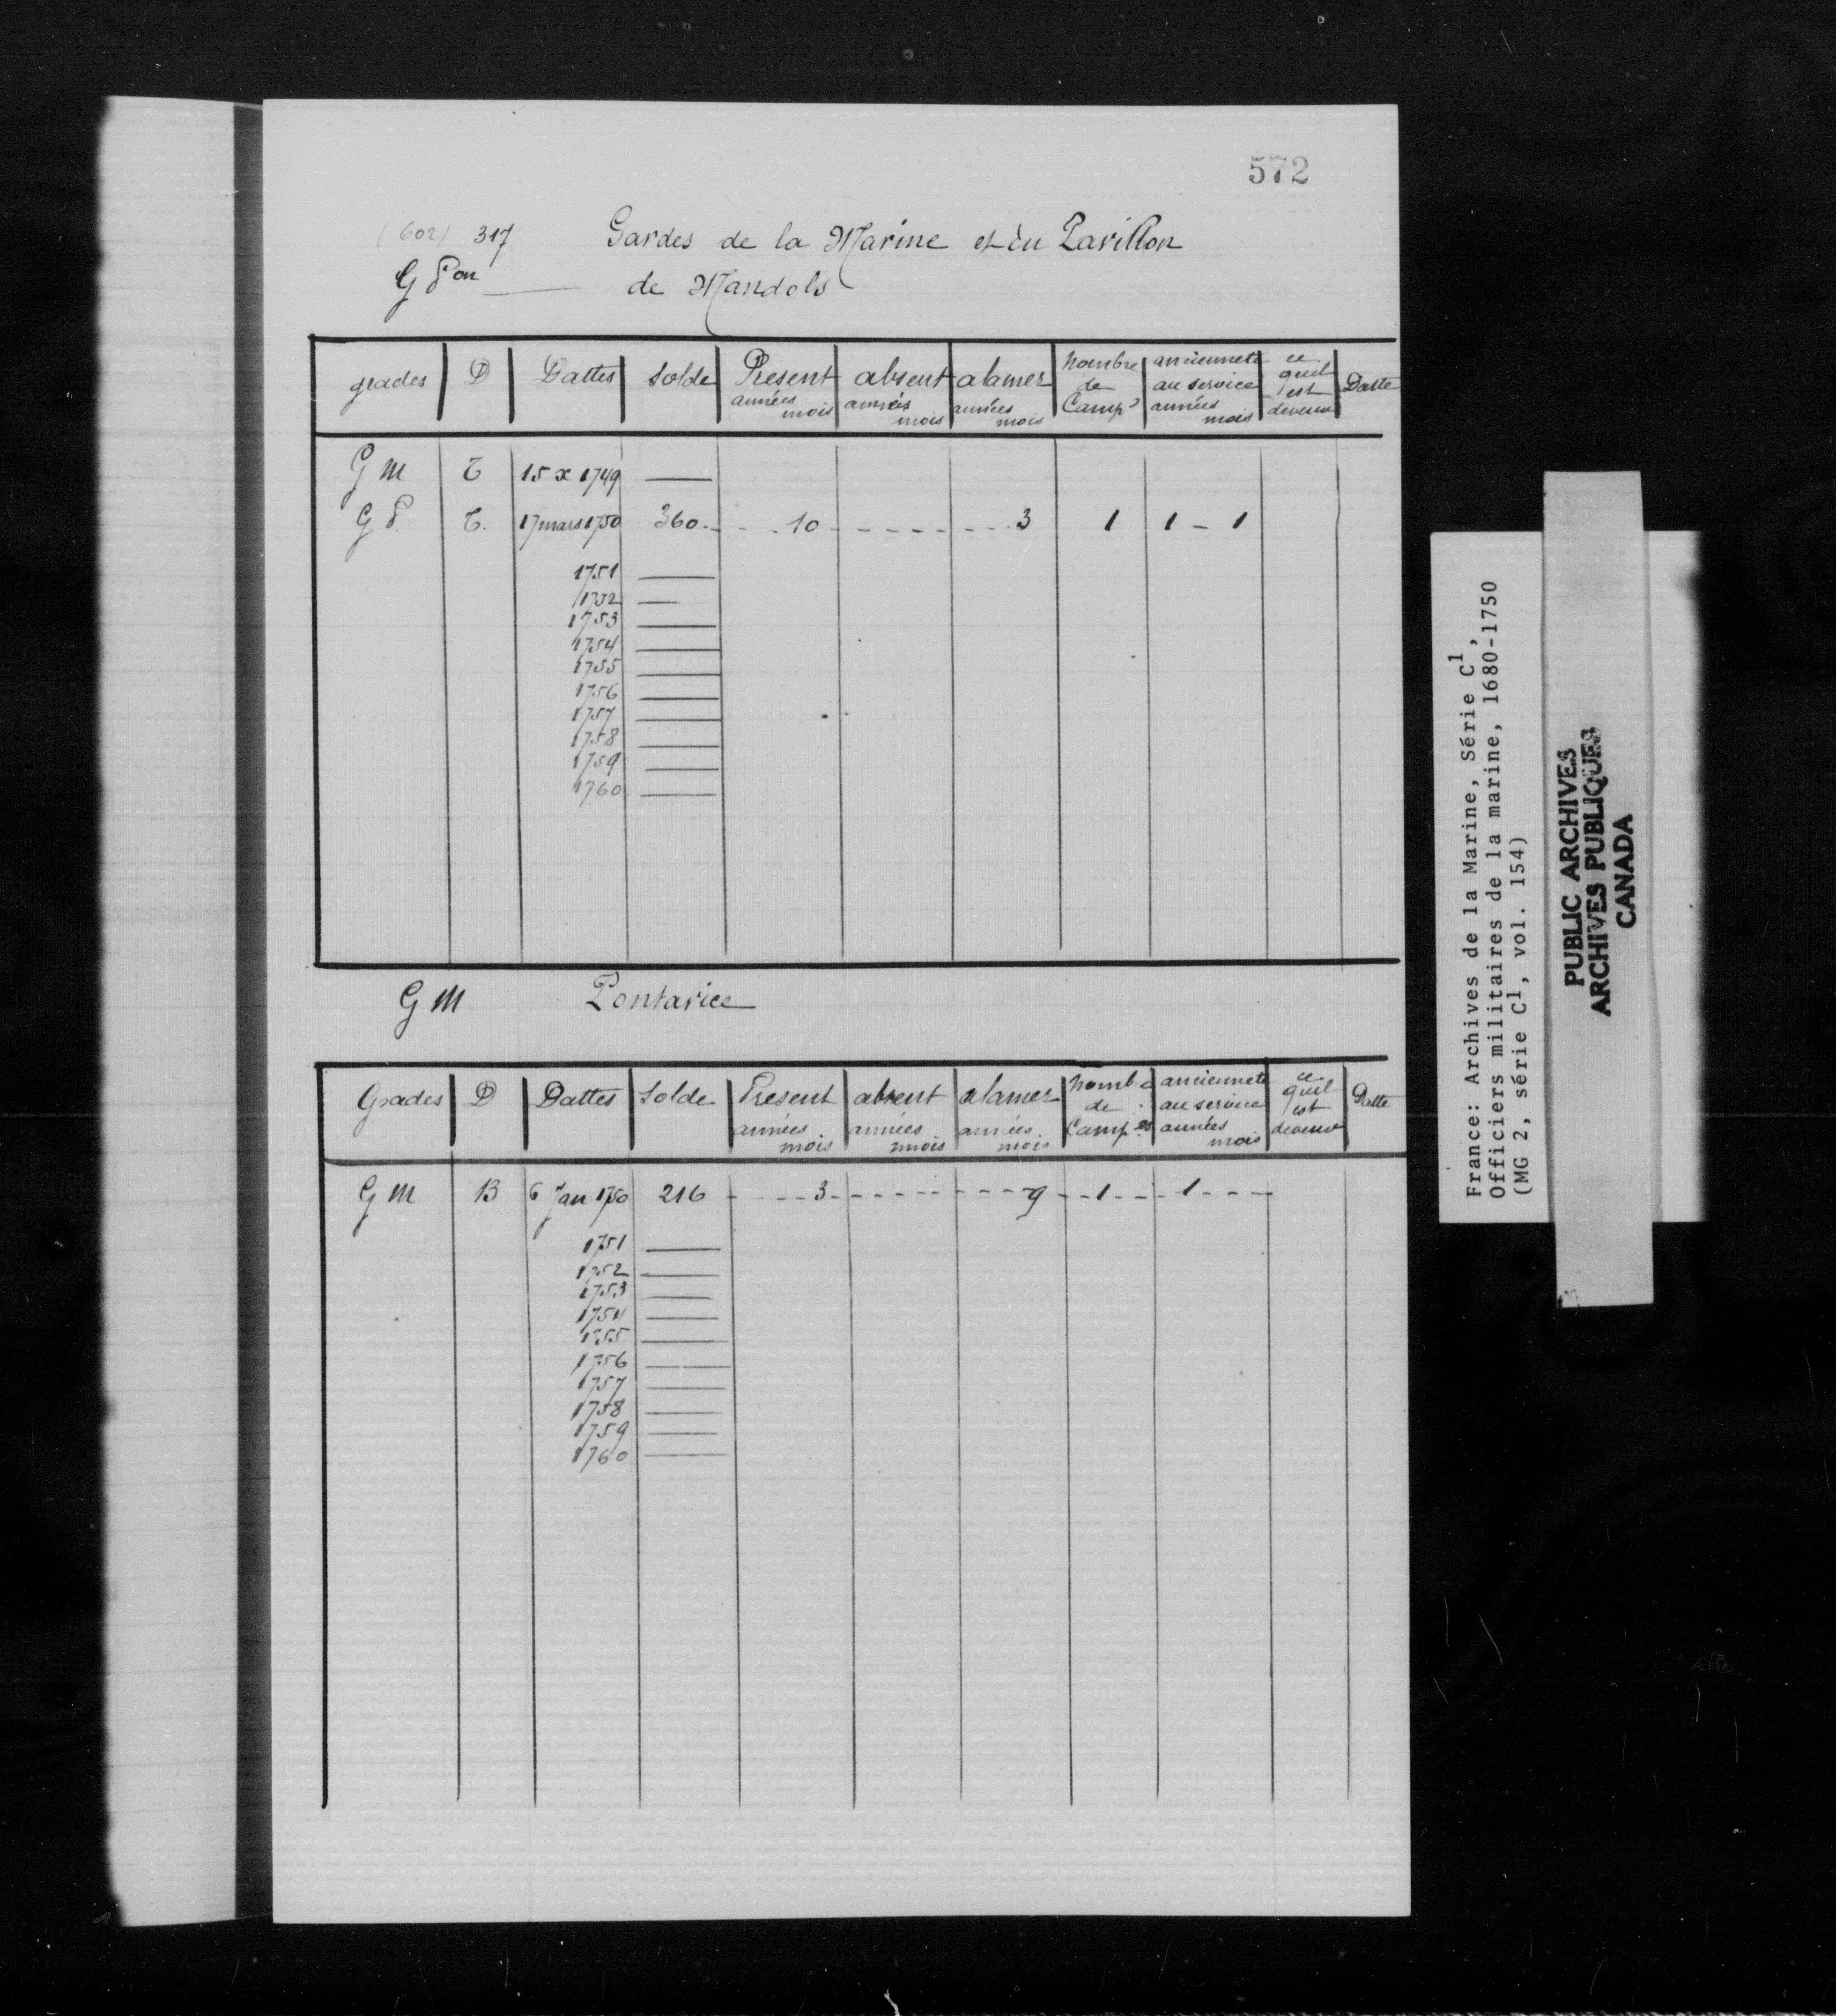 572
(602) 317 Gardes de la Marine et du Pavillon
G Pon — de Mandols
grades | D | Dattes | Solde | Present années mois | absent années mois | alamer années mois | Nombre de Camp s | ancienneté au service années mois | ce quil est devenu | Datte
G M T 15 x 1749 —
G P T. 17 mars 1750 360 - - - 10 - - - - - - - - 3 1 1 - 1
1751 —
1752 —
1753 —
1754 —
1755 —
1756 —
1757 —
1758 —
1759 —
1760 —
G M Pontarice
Grades | D | Dattes | Solde | Présent années mois | absent années mois | alamer années mois | Nomb de Camp es | ancienneté au service années mois | ce quil est devenu | Datte
G M B 6 Jan 1750 216 - - - - 3 - - - - - - - - - 9 - - 1 - - - 1 - - - -
1751 —
1752 —
1753 —
1754 —
1755 —
1756 —
1757 —
1758 —
1759 —
1760 —
France: Archives de la Marine, Série C1,
Officiers militaires de la marine, 1680-1750
(MG 2, série C1, vol. 154)
PUBLIC ARCHIVES
ARCHIVES PUBLIQUES
CANADA